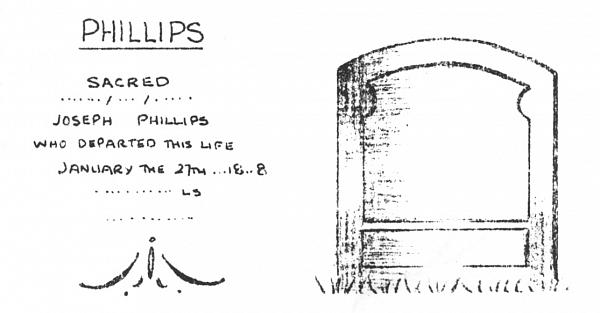 PHILLIPS
SACRED
....../.../......
JOSEPH PHILLIPS
WHO DEPARTED THIS LIFE
JANUARY THE 27TH ...18..8
.......... LS
............